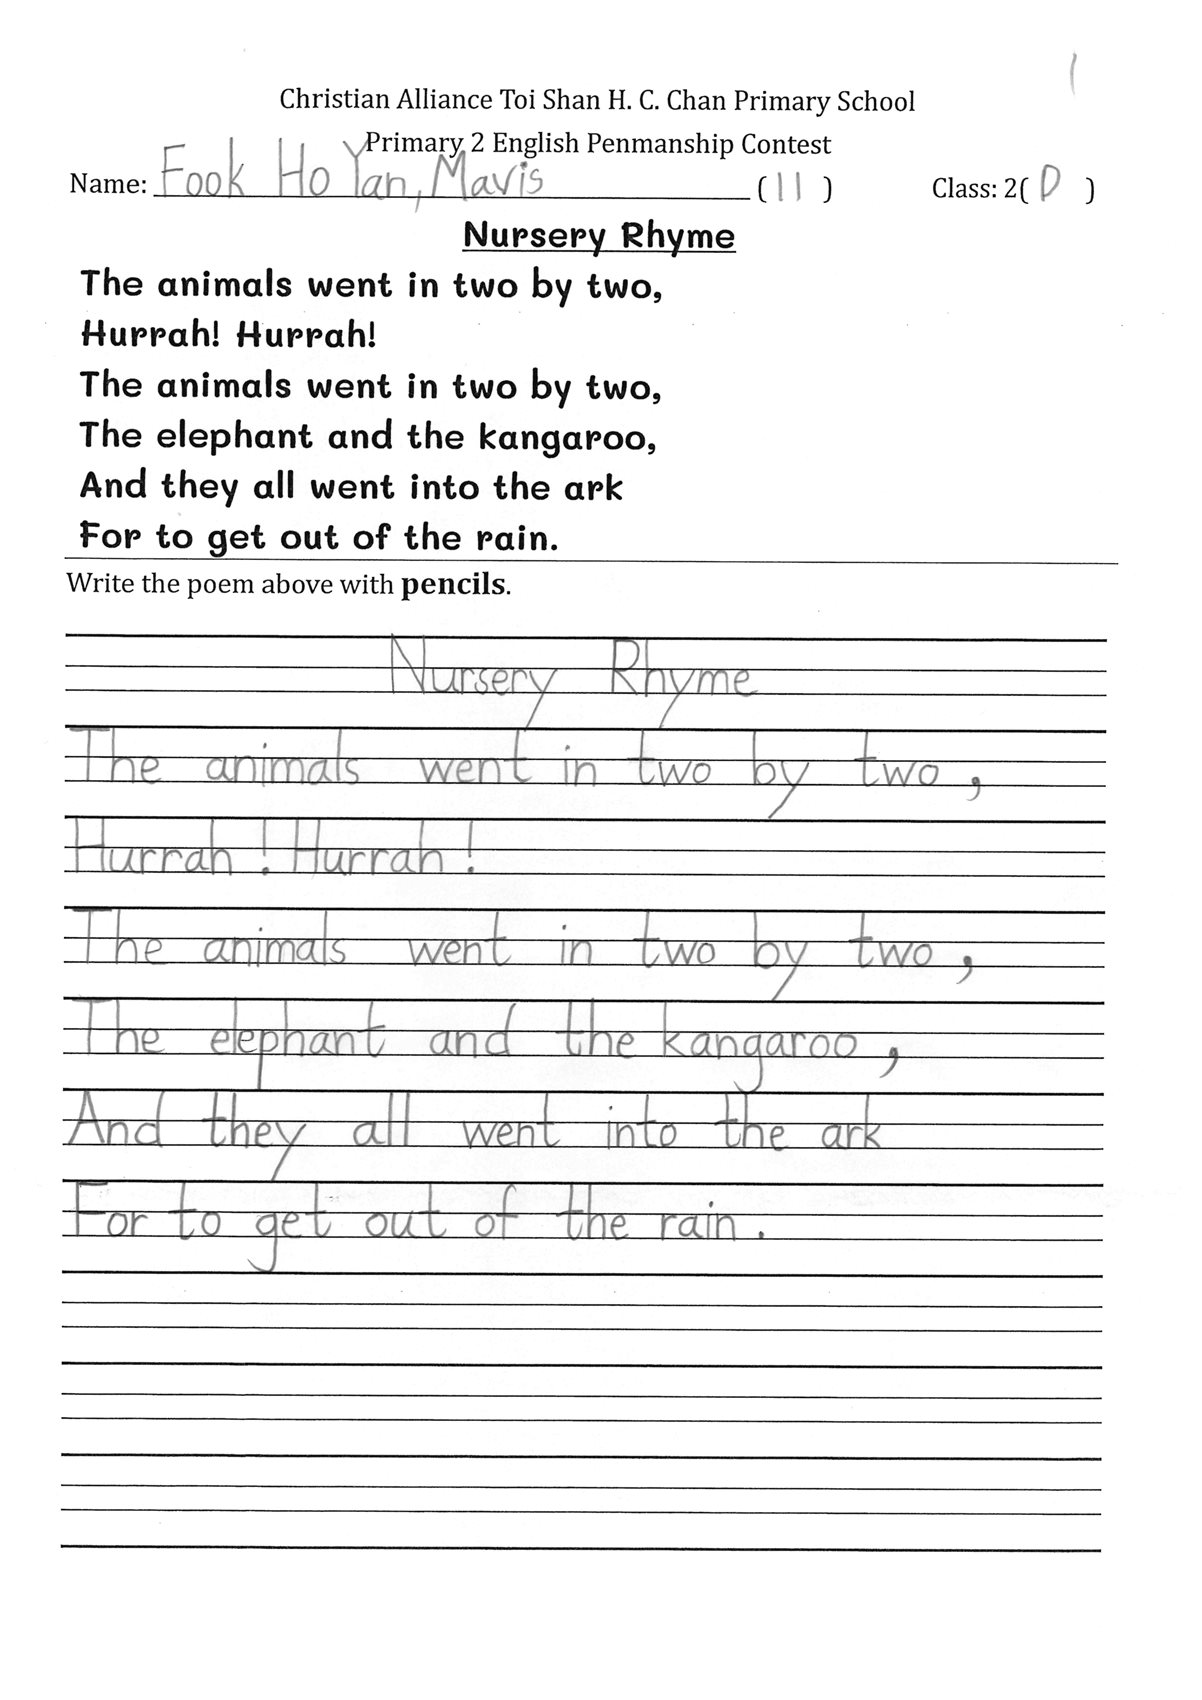 Christian Alliance Toi Shan H. C. Chan Primary School
Primary 2 English Penmanship Contest
Name: Fook Ho Yan, Mavis (11) Class: 2(D)
Nursery Rhyme
The animals went in two by two,
Hurrah! Hurrah!
The animals went in two by two,
The elephant and the kangaroo,
And they all went into the ark
For to get out of the rain.
Write the poem above with pencils.
Nursery Rhyme
The animals went in two by two,
Hurrah! Hurrah!
The animals went in two by two,
The elephant and the kangaroo,
And they all went into the ark
For to get out of the rain.